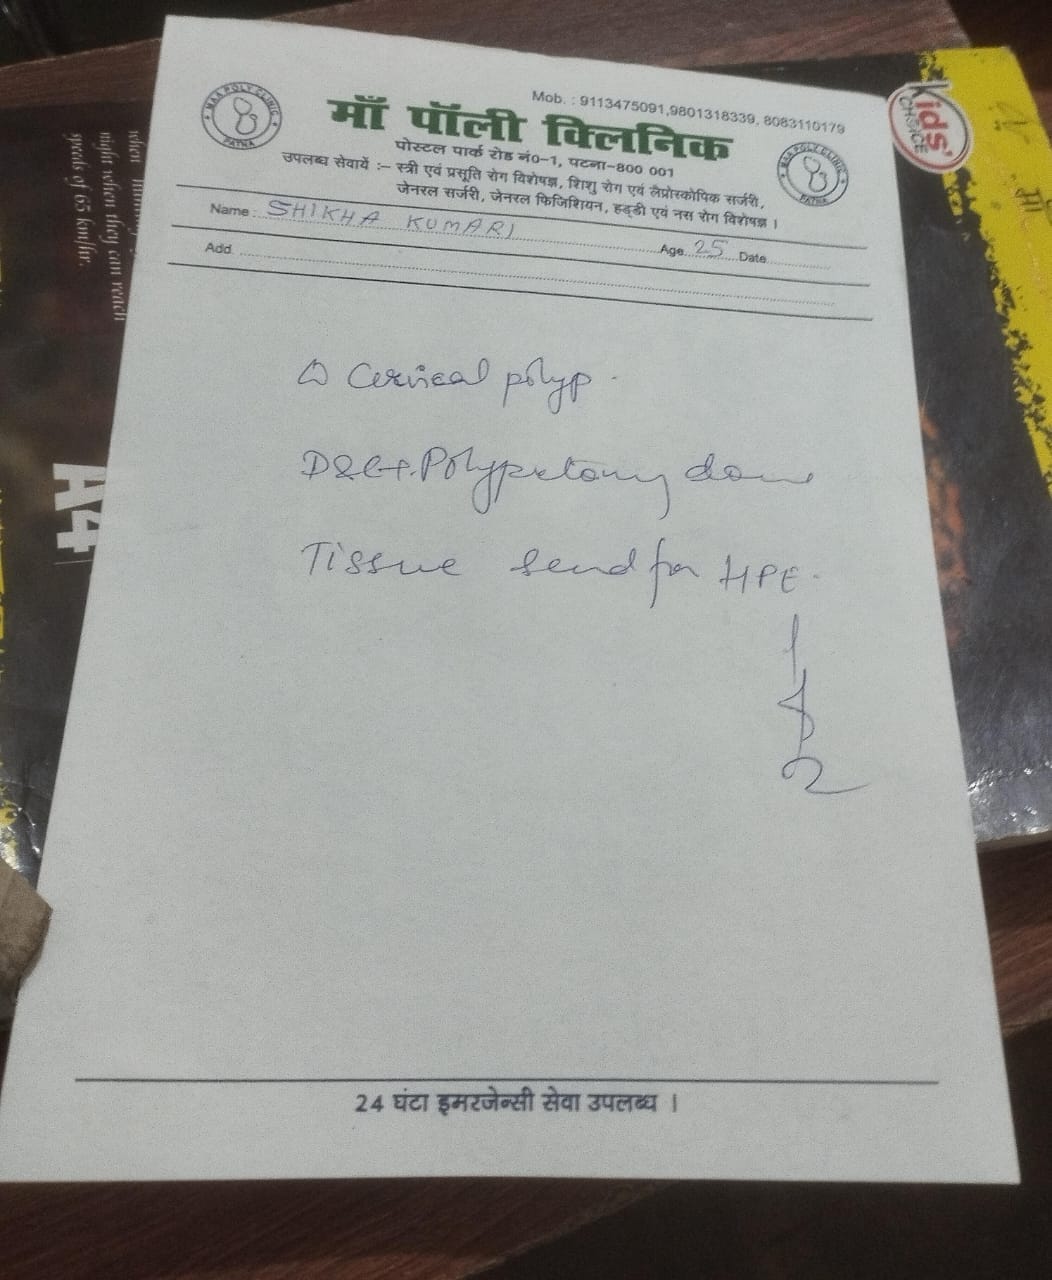 Mob. : 9113475091,9801318339, 8083110179
माँ पॉली क्लिनिक
पोस्टल पार्क रोड नं०-1, पटना-800 001
उपलब्ध सेवायें :- स्त्री एवं प्रसूति रोग विशेषज्ञ, शिशु रोग एवं लैप्रोस्कोपिक सर्जरी,
जेनरल सर्जरी, जेनरल फिजिशियन, हड्डी एवं नस रोग विशेषज्ञ।
MAA POLY CLINIC
PATNA
MAA POLY CLINIC
PATNA
Name : SHIKHA KUMARI Age 25 Date
Add.
Δ Cervical polyp.
D&C+Polypectomy done
Tissue send for HPE.
24 घंटा इमरजेन्सी सेवा उपलब्ध ।
Kids'
CHOICE
might when they can reach
speeds of 65 km/hr.
A4